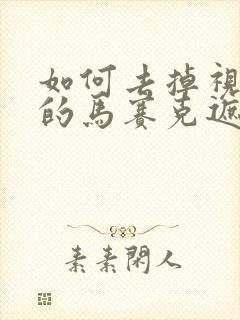 如何去掉視
的馬賽克遮
素素閑人